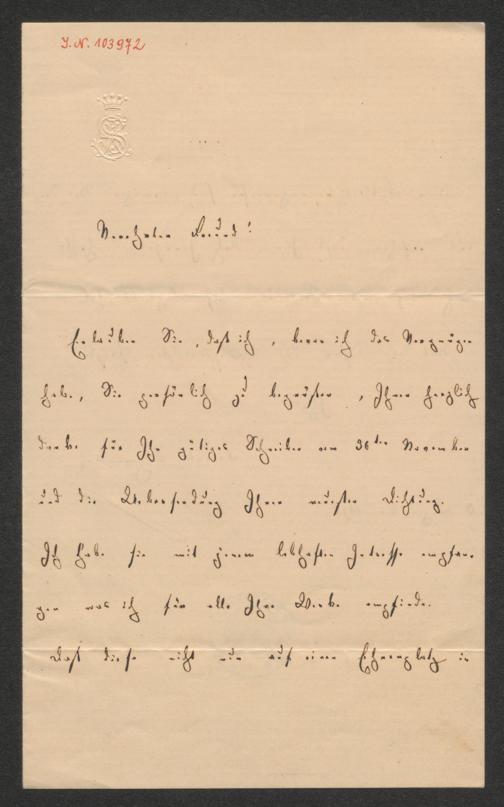 J.N. 103972
Verehrter Freund!
Erlauben Sie, daß ich, bevor ich das Vergnügen
habe, Sie persönlich zu begrüßen, Ihnen herzlich
danke für Ihr gütiges Schreiben vom 26ten November
und die Uebersendung Ihrer neuesten Dichtung.
Ich habe sie mit jenem lebhaften Interesse empfan-
gen was ich für alle Ihre Werke empfinde.
Daß diese nicht nur auf einen Ehrenplatz in